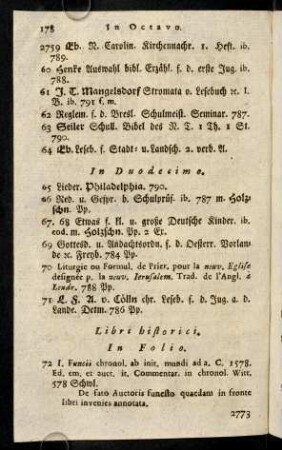 178 In Octavo.
2759 Ev. N. Carolin. Kirchennachr. 1. Heft. ib.
789.
60 Henke Auswahl bibl. Erzähl. f. d. erste Jug. ib.
788.
61 J. T. Mangelsdorf Stromata v. Lesebuch ꝛc. I.
B. ib. 791 f. m.
62 Reglem. f. d. Bresl. Schulmeist. Seminar. 787.
63 Seiler Schull. Bibel des N. T. 1 Th. 1 St.
790.
64 Ev. Leseb. f. Stadt- u. Landsch. 2. verb. A.
In Duodecimo.
65 Lieder. Philadelphia. 790.
66 Red. u. Gespr. b. Schulprüf. ib. 787 m. Holz-
schn. Pp.
67. 68 Etwas f. kl. u. große Deutsche Kinder. ib.
eod. m. Holzschn. Pp. 2 Ex.
69 Gottesd. u. Andachtsordn. f. d. Oesterr. Vorlan-
de ꝛc. Freyb. 784 Pp.
70 Liturgie ou Formul. de Prier. pour la nouv. Eglise
designée p. la nouv. Jerusalem. Trad. de l'Angl. à
Londr. 788 Pp.
71 L. F. A. v. Cölln chr. Leseb. f. d. Jug. a. d.
Lande. Detm. 786 Pp.
Libri historici.
In Folio.
72 I. Funcii chronol. ab init. mundi ad a. C. 1578.
Ed. em. et auct. it. Commentar. in chronol. Witt.
578 Schwl.
De fato Auctoris funesto quaedam in fronte
libri invenies annotata.
2773